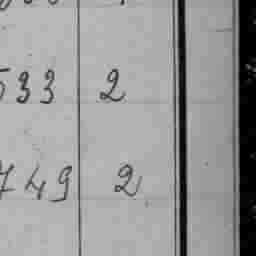 533 2
749 2